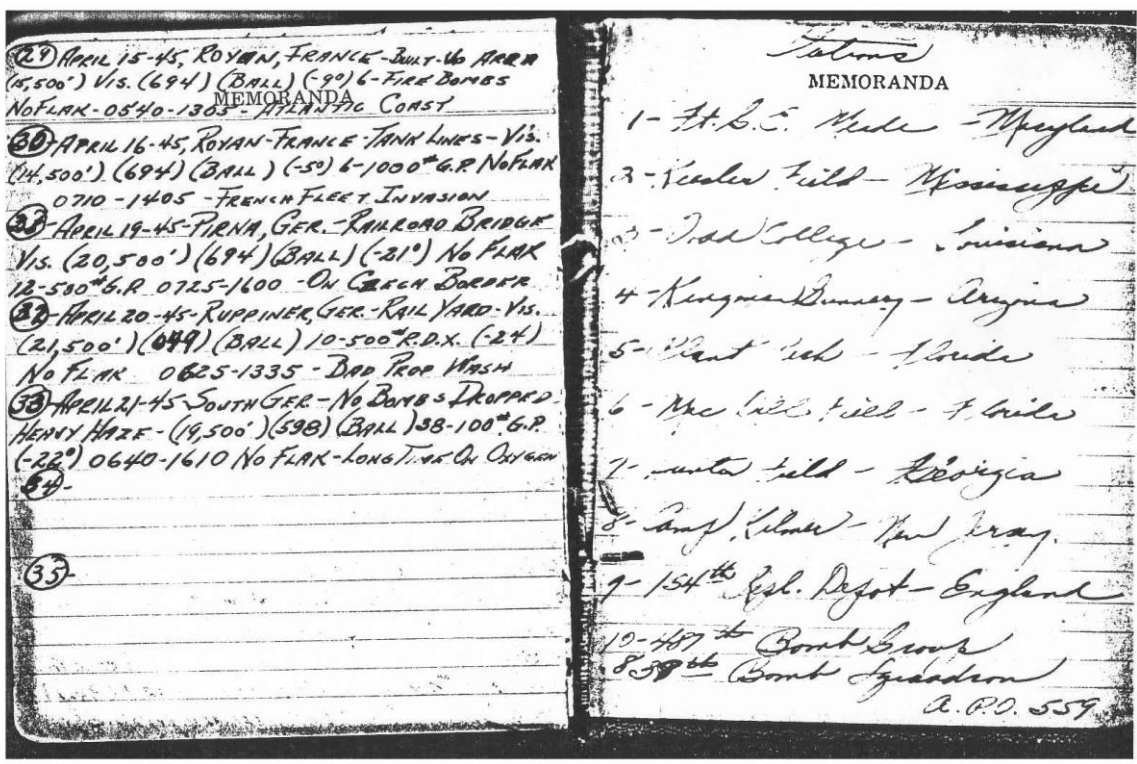 (29) APRIL 15-45, ROYAN, FRANCE - BUILT-UP AREA
(15,500') VIS. (694) (BALL) (-9°) 6-FIRE BOMBS
MEMORANDA
NO FLAK - 0540-1305 - ATLANTIC COAST
(30) - APRIL 16-45, ROYAN-FRANCE-TANK LINES - VIS.
(14,500') (694) (BALL) (-5°) 6-1000# G.P. NO FLAK
0710-1405 - FRENCH FLEET INVASION
APRIL 19-45-PIRNA, GER. - RAILROAD BRIDGE
VIS. (20,500') (694) (BALL) (-21°) NO FLAK
12-500# G.P. 0725-1600 - ON CZECH BORDER
(32) - APRIL 20-45-RUPPINER, GER. - RAIL YARD - VIS.
(21,500') (049) (BALL) 10-500# R.D.X. (-24)
NO FLAK 0625-1335 - BAD PROP WASH
(33) APRIL 21-45-SOUTH GER - NO BOMBS DROPPED
HEAVY HAZE - (19,500') (598) (BALL) 38-100# G.P.
(-22°) 0640-1610 NO FLAK - LONG TIME ON OXYGEN
(34) -
(35) -
MEMORANDA
1- Ft. G.E. Meade - Maryland
2- Keesler Field - Mississippi
3- Dodd College - Louisiana
4- Kingman Gunnery - Arizona
5- Plant - Florida
6- Mac Dill Field - Florida
7- Hunter Field - Georgia
8- Camp Kilmer - New Jersey.
9- 154th Repl. Depot - England
10- 487th Bomb Group
838th Bomb Squadron
A.P.O. 559